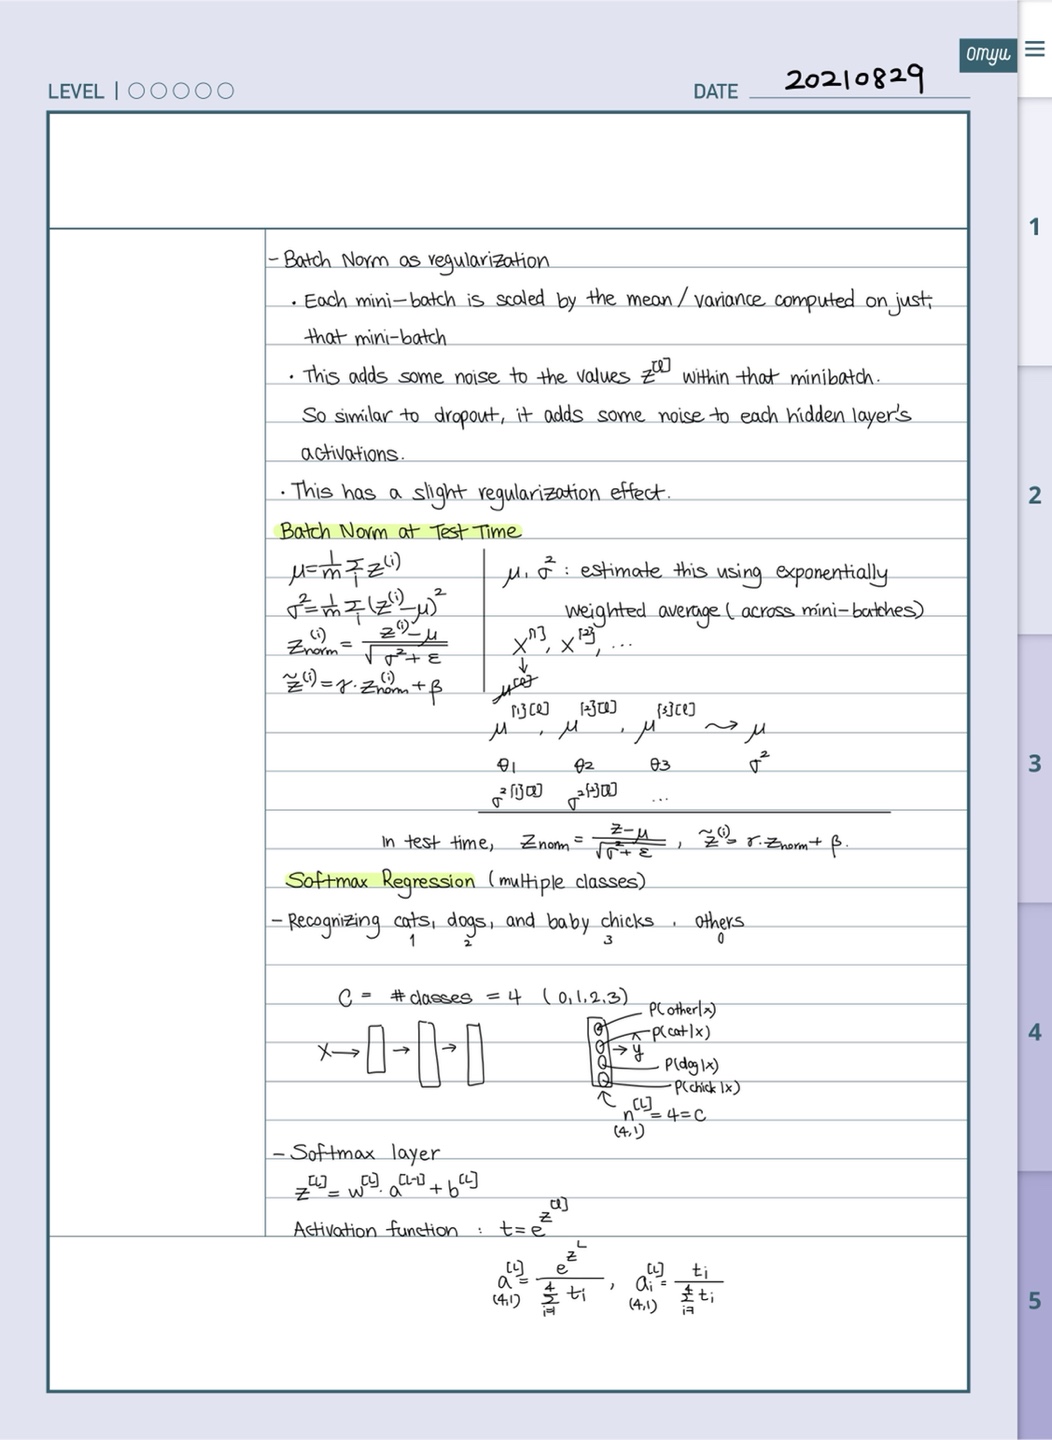 omyu
LEVEL
DATE 20210829
- Batch Norm as regularization
· Each mini-batch is scaled by the mean/variance computed on just
that mini-batch
· This adds some noise to the values z^[l] within that minibatch.
So similar to dropout, it adds some noise to each hidden layer's
activations.
· This has a slight regularization effect.
Batch Norm at Test Time
μ = 1/m Σ_i z^(i)
σ² = 1/m Σ_i (z^(i) - μ)²
z_norm^(i) = (z^(i) - μ) / √(σ² + ε)
z̃^(i) = γ · z_norm^(i) + β
μ, σ² : estimate this using exponentially
weighted average (across mini-batches)
X^[1], X^{2}, ...
↓
μ^{1}[l], μ^{2}[l], μ^{3}[l] ⇝ μ
θ1 θ2 θ3 σ²
σ²^{1}[l] σ²^{2}[l] ...
In test time, z_norm = (z - μ) / √(σ² + ε), z̃^(i) = γ · z_norm + β.
Softmax Regression (multiple classes)
- Recognizing cats, dogs, and baby chicks, others
1 2 3 0
C = #classes = 4 (0,1,2,3)
X → → →
P(other|x)
P(cat|x)
→ ŷ
P(dog|x)
P(chick|x)
n^[L] = 4 = C
(4,1)
- Softmax layer
z^[L] = w^[L] · a^[L-1] + b^[L]
Activation function : t = e^z^[l]
a^[L] = e^z^L / Σ_{i=1}^4 t_i , a_i^[L] = t_i / Σ_{i=1}^4 t_i
(4,1) (4,1)
1
2
3
4
5